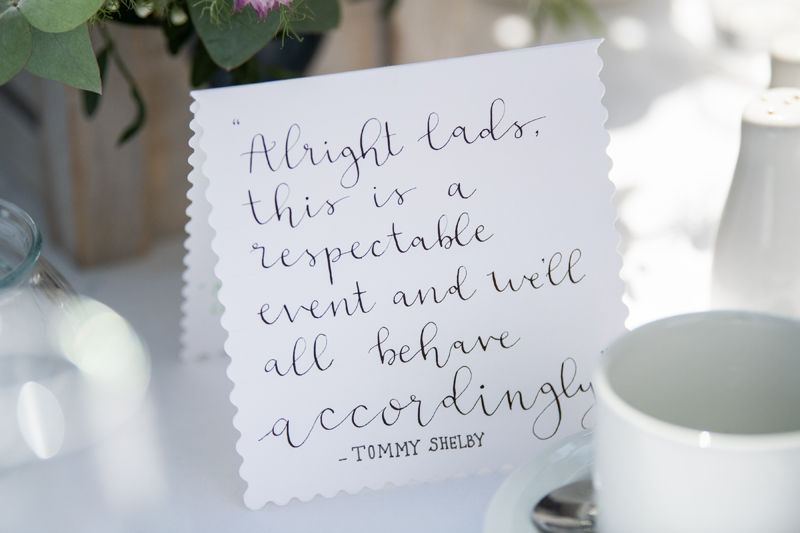 “Alright lads,
this is a
respectable
event and we'll
all behave
accordingly”
- TOMMY SHELBY